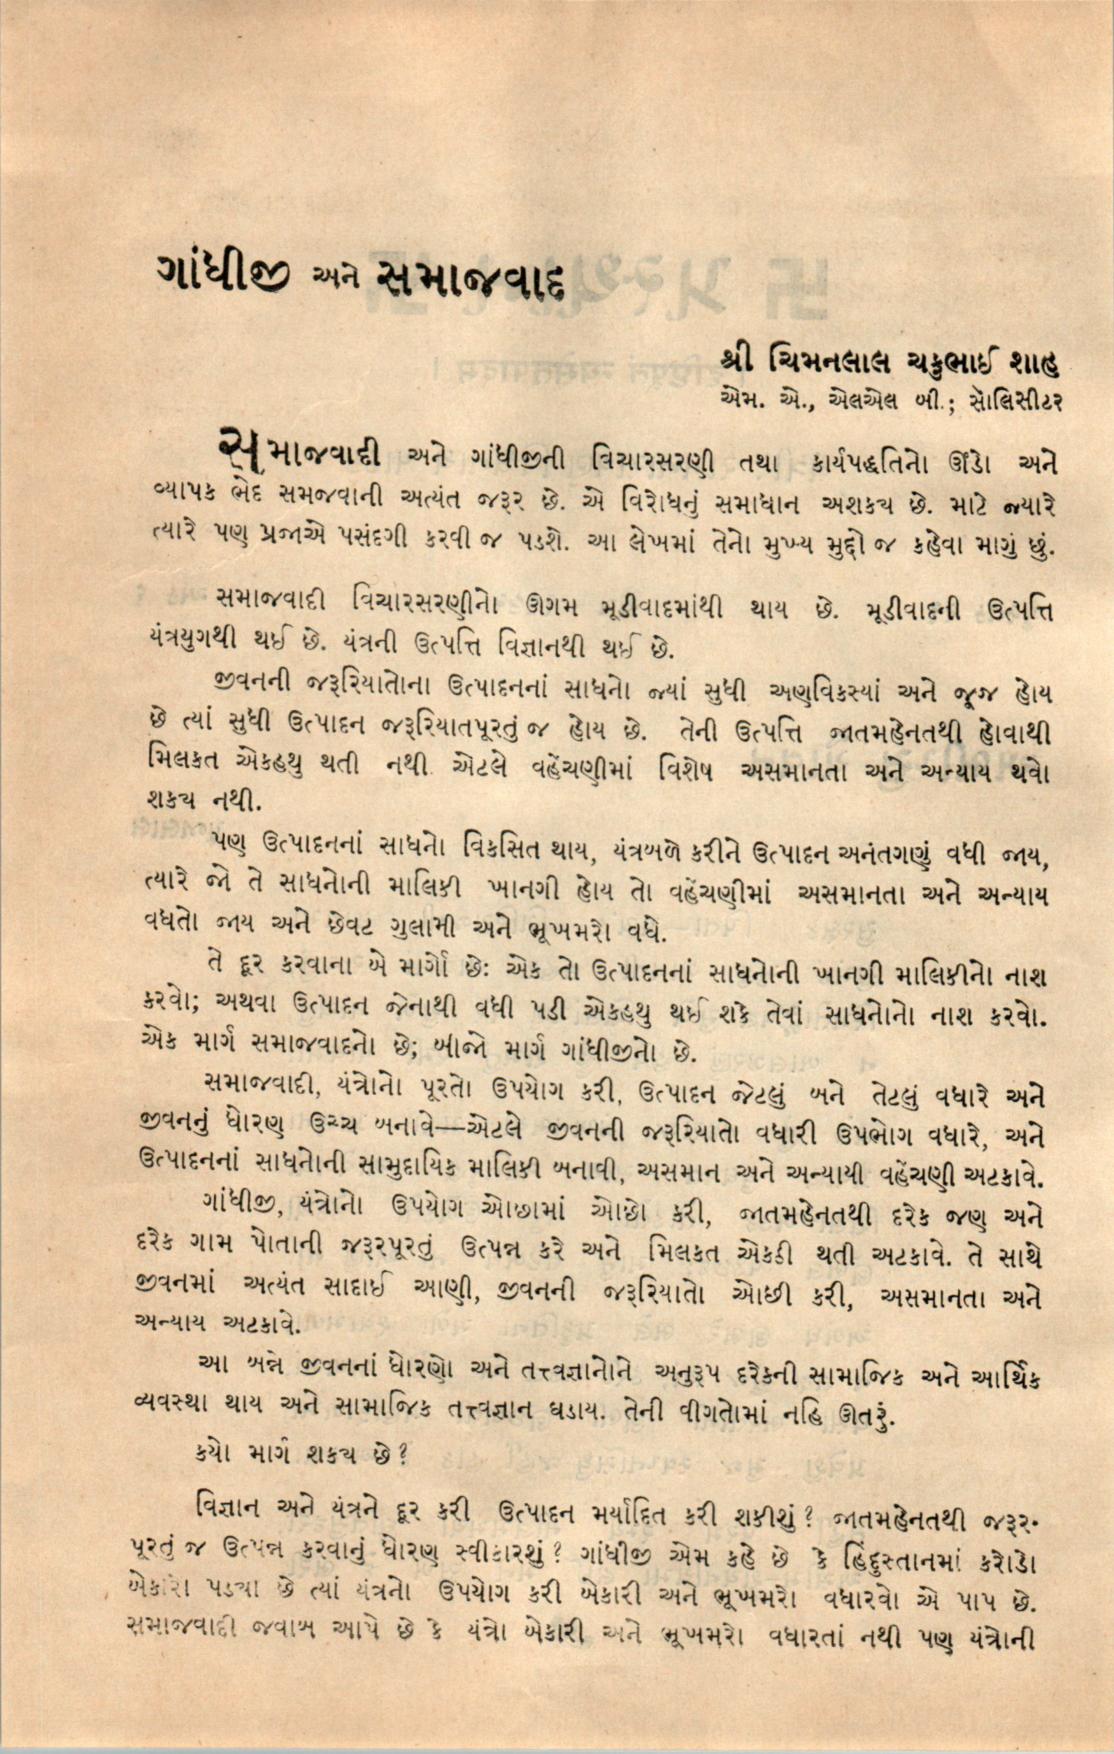 ગાંધીજી અને સમાજવાદ
શ્રી ચિમનલાલ ચકુભાઈ શાહ
એમ. એ., એલએલ બી.; સૉલિસીટર
સમાજવાદી અને ગાંધીજીની વિચારસરણી તથા કાર્યપદ્ધતિનો ઊંડો અને
વ્યાપક ભેદ સમજવાની અત્યંત જરૂર છે. એ વિરોધનું સમાધાન અશક્ય છે. માટે જ્યારે
ત્યારે પણ પ્રજાએ પસંદગી કરવી જ પડશે. આ લેખમાં તેનો મુખ્ય મુદ્દો જ કહેવા માગું છું.
સમાજવાદી વિચારસરણીનો ઊગમ મૂડીવાદમાંથી થાય છે. મૂડીવાદની ઉત્પત્તિ
યંત્રયુગથી થઈ છે. યંત્રની ઉત્પત્તિ વિજ્ઞાનથી થઈ છે.
જીવનની જરૂરિયાતોના ઉત્પાદનનાં સાધનો જ્યાં સુધી અણવિકસ્યાં અને જૂજ હોય
છે ત્યાં સુધી ઉત્પાદન જરૂરિયાતપૂરતું જ હોય છે. તેની ઉત્પત્તિ જાતમહેનતથી હોવાથી
મિલકત એકહથુ થતી નથી એટલે વહેંચણીમાં વિશેષ અસમાનતા અને અન્યાય થવો
શક્ય નથી.
પણ ઉત્પાદનનાં સાધનો વિકસિત થાય, યંત્રબળે કરીને ઉત્પાદન અનંતગણું વધી જાય,
ત્યારે જો તે સાધનોની માલિકી ખાનગી હોય તો વહેંચણીમાં અસમાનતા અને અન્યાય
વધતો જાય અને છેવટ ગુલામી અને ભૂખમરો વધે.
તે દૂર કરવાના બે માર્ગો છેઃ એક તો ઉત્પાદનનાં સાધનોની ખાનગી માલિકીનો નાશ
કરવો; અથવા ઉત્પાદન જેનાથી વધી પડી એકહથુ થઈ શકે તેવાં સાધનોનો નાશ કરવો.
એક માર્ગ સમાજવાદનો છે; બીજો માર્ગ ગાંધીજીનો છે.
સમાજવાદી, યંત્રોનો પૂરતો ઉપયોગ કરી, ઉત્પાદન જેટલું બને તેટલું વધારે અને
જીવનનું ધોરણ ઉચ્ચ બનાવે—એટલે જીવનની જરૂરિયાતો વધારી ઉપભોગ વધારે, અને
ઉત્પાદનનાં સાધનોની સામુદાયિક માલિકી બનાવી, અસમાન અને અન્યાયી વહેંચણી અટકાવે.
ગાંધીજી, યંત્રોનો ઉપયોગ ઓછામાં ઓછો કરી, જાતમહેનતથી દરેક જણ અને
દરેક ગામ પોતાની જરૂરપૂરતું ઉત્પન્ન કરે અને મિલકત એકઠી થતી અટકાવે. તે સાથે
જીવનમાં અત્યંત સાદાઈ આણી, જીવનની જરૂરિયાતો ઓછી કરી, અસમાનતા અને
અન્યાય અટકાવે.
આ બન્ને જીવનનાં ધોરણો અને તત્ત્વજ્ઞાનોને અનુરૂપ દરેકની સામાજિક અને આર્થિક
વ્યવસ્થા થાય અને સામાજિક તત્ત્વજ્ઞાન ઘડાય. તેની વીગતોમાં નહિ ઊતરું.
કયો માર્ગ શક્ય છે?
વિજ્ઞાન અને યંત્રને દૂર કરી ઉત્પાદન મર્યાદિત કરી શકીશું? જાતમહેનતથી જરૂર-
પૂરતું જ ઉત્પન્ન કરવાનું ધોરણ સ્વીકારશું? ગાંધીજી એમ કહે છે કે હિંદુસ્તાનમાં કરોડો
બેકારો પડ્યા છે ત્યાં યંત્રનો ઉપયોગ કરી બેકારી અને ભૂખમરો વધારવો એ પાપ છે.
સમાજવાદી જવાબ આપે છે કે યંત્રો બેકારી અને ભૂખમરો વધારતાં નથી પણ યંત્રોની